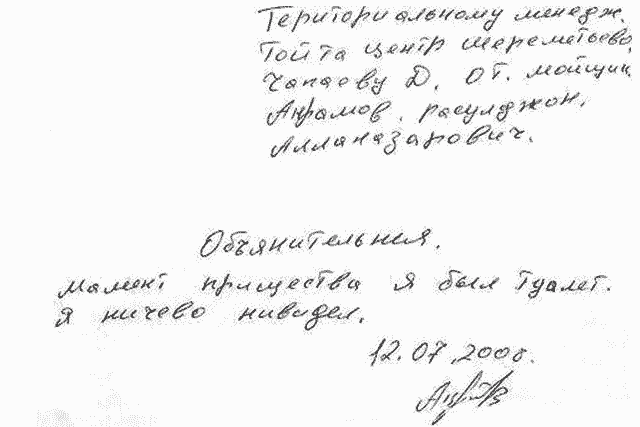 Териториальному менедж.
Тойта центр шереметьево,
Чапаеву Д. От. мойщик.
Акрамов. расулджон.
Алланазарович.
Объянительния.
мамент пришества я был туалет.
я ничево нивидел.
12.07.2006.